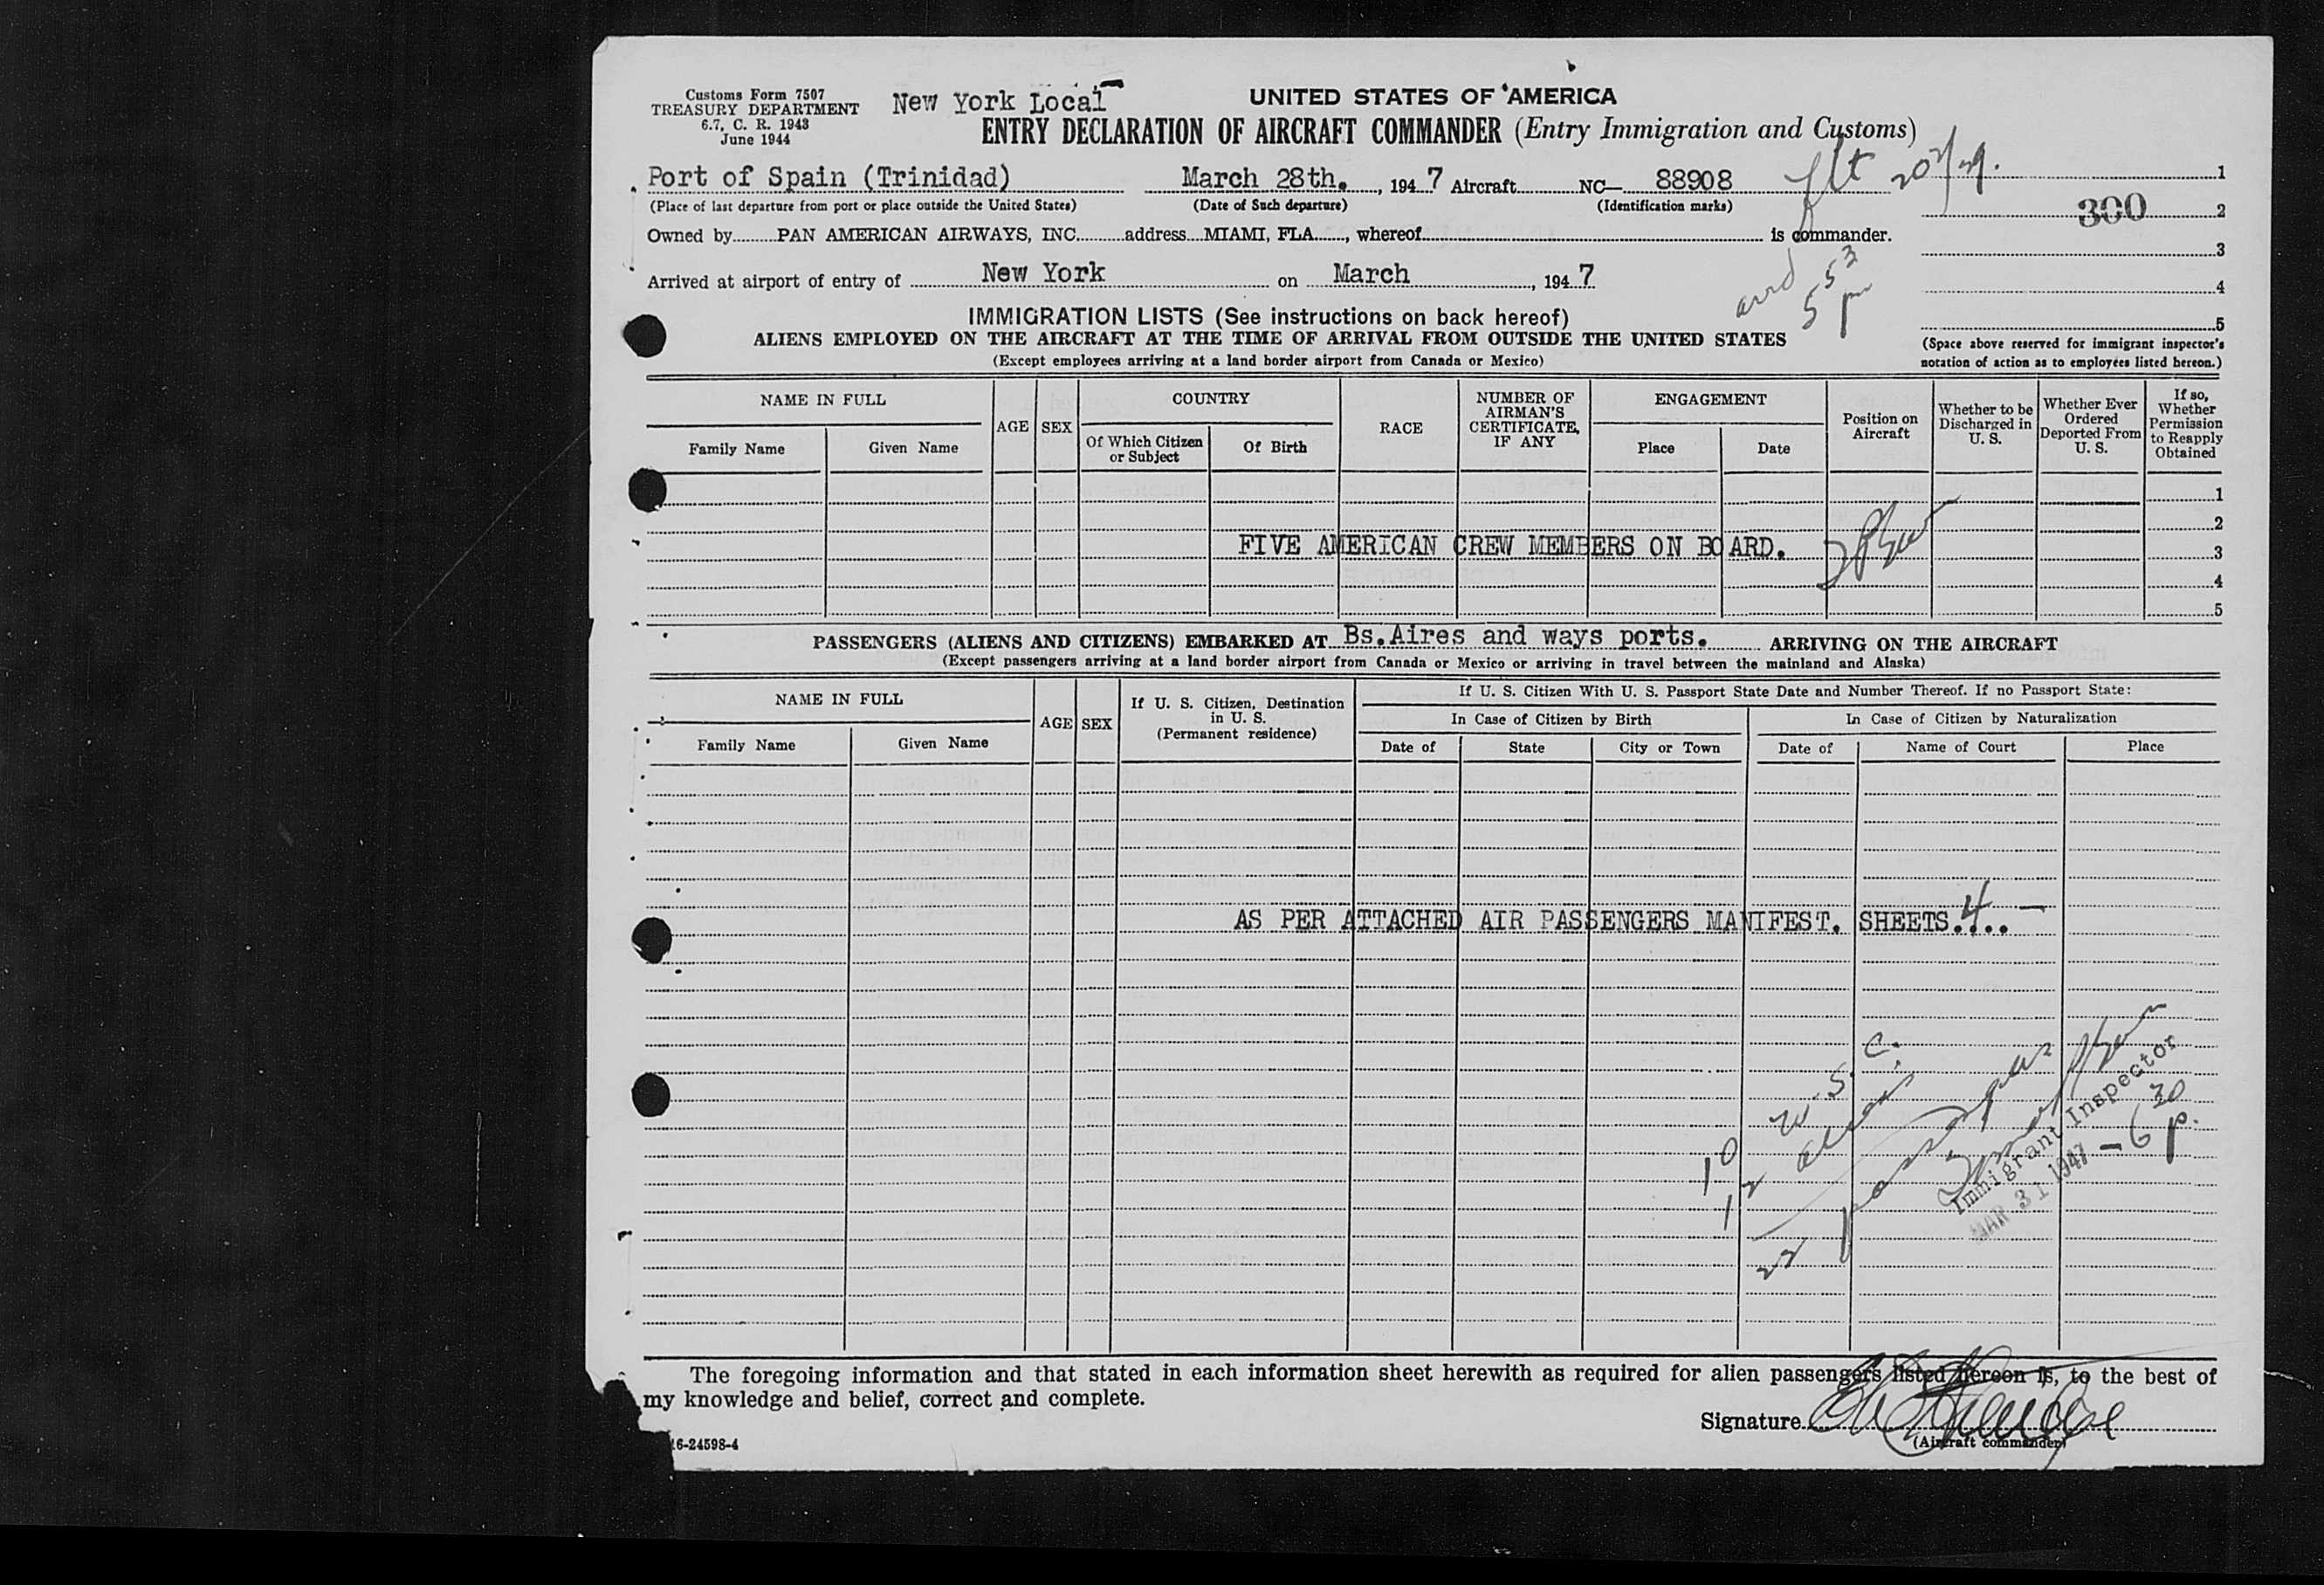 Customs Form 7507
TREASURY DEPARTMENT
6.7, C. R. 1943
June 1944
New York Local
UNITED STATES OF AMERICA
ENTRY DECLARATION OF AIRCRAFT COMMANDER (Entry Immigration and Customs)
Port of Spain (Trinidad) March 28th. , 194 7 Aircraft NC— 88908 flt 202/29. 1
(Place of last departure from port or place outside the United States) (Date of Such departure) (Identification marks)
300 2
Owned by PAN AMERICAN AIRWAYS, INC. address MIAMI, FLA. , whereof is commander.
3
Arrived at airport of entry of New York on March , 194 7
arrd 5 53 pm
4
5
IMMIGRATION LISTS (See instructions on back hereof)
ALIENS EMPLOYED ON THE AIRCRAFT AT THE TIME OF ARRIVAL FROM OUTSIDE THE UNITED STATES
(Except employees arriving at a land border airport from Canada or Mexico)
(Space above reserved for immigrant inspector's
notation of action as to employees listed hereon.)
NAME IN FULL
Family Name
Given Name
AGE
SEX
COUNTRY
Of Which Citizen
or Subject
Of Birth
RACE
NUMBER OF
AIRMAN'S
CERTIFICATE,
IF ANY
ENGAGEMENT
Place
Date
Position on
Aircraft
Whether to be
Discharged in
U. S.
Whether Ever
Ordered
Deported From
U. S.
If so,
Whether
Permission
to Reapply
Obtained
1
2
FIVE AMERICAN CREW MEMBERS ON BOARD. 3
4
5
PASSENGERS (ALIENS AND CITIZENS) EMBARKED AT Bs.Aires and ways ports. ARRIVING ON THE AIRCRAFT
(Except passengers arriving at a land border airport from Canada or Mexico or arriving in travel between the mainland and Alaska)
NAME IN FULL
Family Name
Given Name
AGE
SEX
If U. S. Citizen, Destination
in U. S.
(Permanent residence)
If U. S. Citizen With U. S. Passport State Date and Number Thereof. If no Passport State:
In Case of Citizen by Birth
Date of
State
City or Town
In Case of Citizen by Naturalization
Date of
Name of Court
Place
AS PER ATTACHED AIR PASSENGERS MANIFEST. SHEETS.4..
10 U.S.C.
12 aliens
22 passengers
Immigrant Inspector
MAR 31 1947 - 6 30 p.
The foregoing information and that stated in each information sheet herewith as required for alien passengers listed hereon is, to the best of
my knowledge and belief, correct and complete.
Signature
(Aircraft commander)
16-24598-4